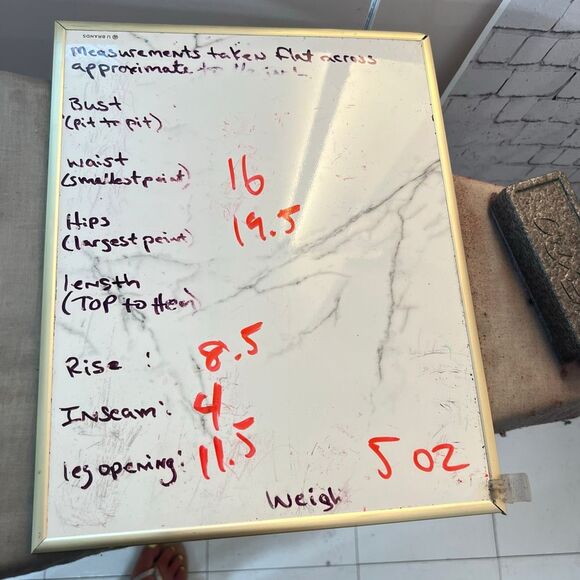 U BRANDS
measurements taken flat across
approximate to the inch
Bust
(pit to pit)
waist
(smallest point) 16
Hips
(largest point) 19.5
length
(TOP to Hem)
Rise : 8.5
Inseam: 4
leg opening: 11.5
5 oz
Weigh